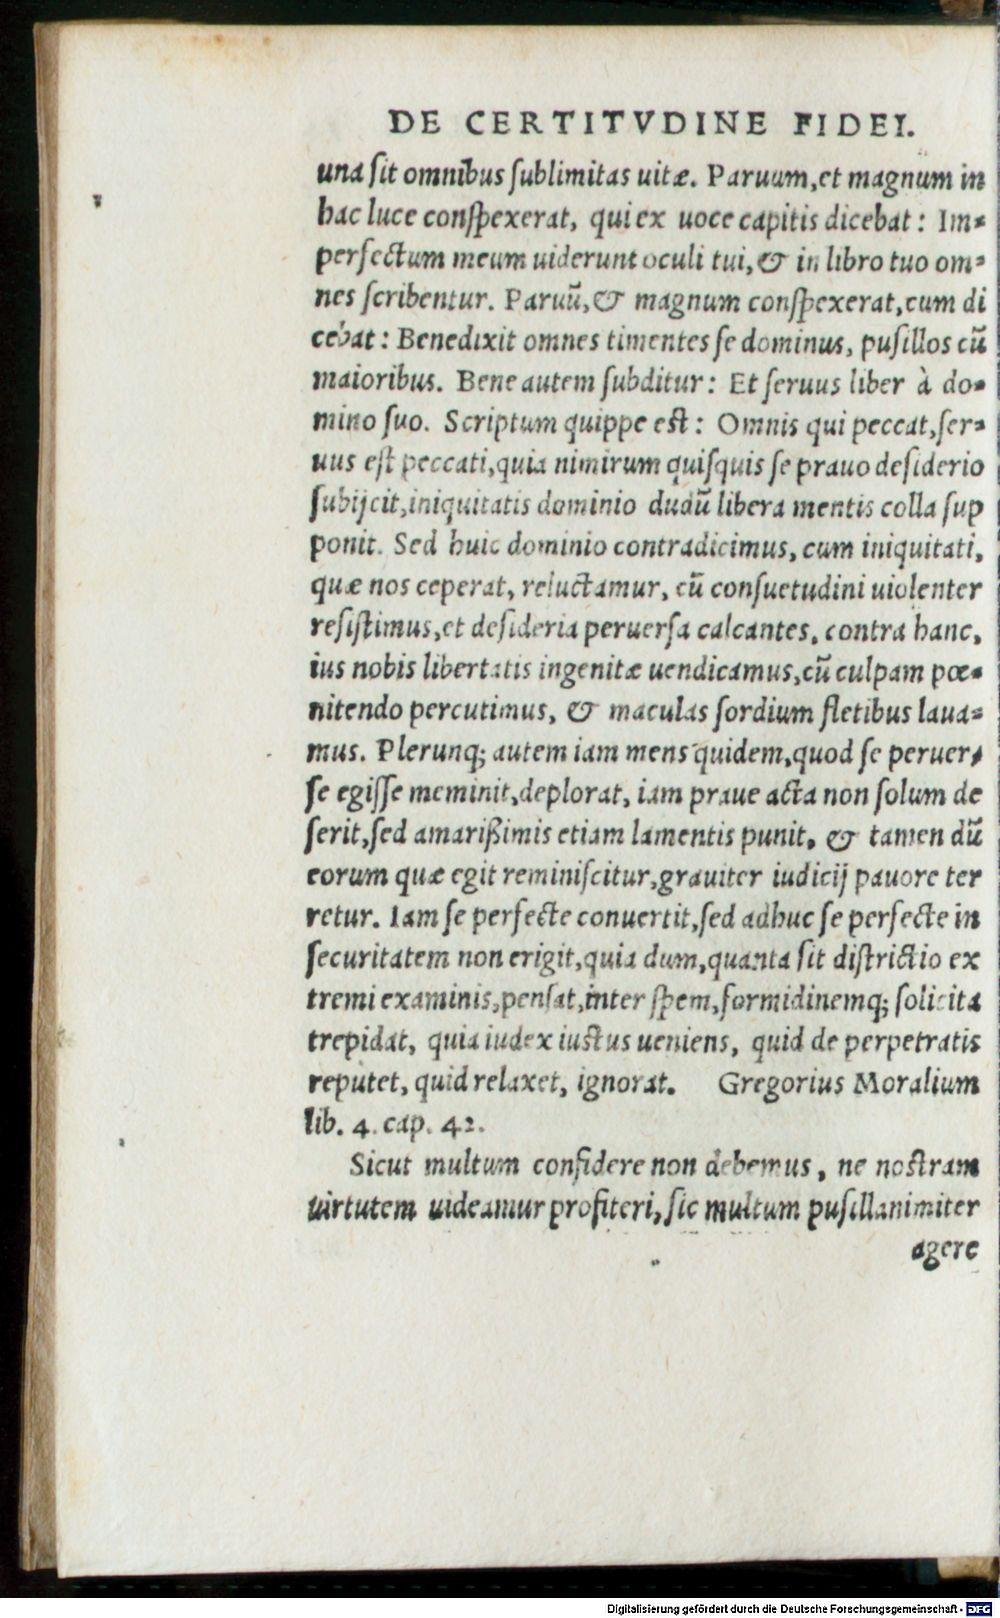 DE CERTITVDINE FIDEI.
una ſit omnibus ſublimitas uitæ. Paruum, et magnum in
hac luce conſpexerat, qui ex uoce capitis dicebat: Im-
perfectum meum uiderunt oculi tui, & in libro tuo om-
nes ſcribentur. Paruū, & magnum conſpexerat, cum di
cebat: Benedixit omnes timentes ſe dominus, puſillos cū
maioribus. Bene autem ſubditur: Et ſeruus liber à do-
mino ſuo. Scriptum quippe eſt: Omnis qui peccat, ſer-
uus eſt peccati, quia nimirum quiſquis ſe prauo deſiderio
ſubijcit, iniquitatis dominio dudū libera mentis colla ſup
ponit. Sed huic dominio contradicimus, cum iniquitati,
quæ nos ceperat, reluctamur, cū conſuetudini uiolenter
reſiſtimus, et deſideria peruerſa calcantes, contra hanc,
ius nobis libertatis ingenitæ uendicamus, cū culpam pœ-
nitendo percutimus, & maculas ſordium fletibus laua-
mus. Plerunq; autem iam mens quidem, quod ſe peruer-
ſe egiſſe meminit, deplorat, iam praue acta non ſolum de
ſerit, ſed amarißimis etiam lamentis punit, & tamen dū
eorum quæ egit reminiſcitur, grauiter iudicij pauore ter
retur. Iam ſe perfecte conuertit, ſed adhuc ſe perfecte in
ſecuritatem non erigit, quia dum, quanta ſit diſtrictio ex
tremi examinis, penſat, inter ſpem, formidinemq; ſolicita
trepidat, quia iudex iustus ueniens, quid de perpetratis
reputet, quid relaxet, ignorat. Gregorius Moralium
lib. 4. cap. 42.
Sicut multum confidere non debemus, ne noſtram
uirtutem uideamur profiteri, ſic multum puſillanimiter
agere
Digitalisierung gefördert durch die Deutsche Forschungsgemeinschaft - DFG